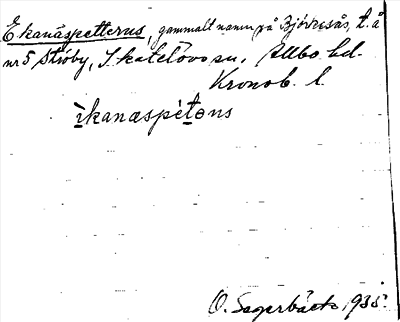 Ekanäspetterus, gammalt namn på Björnsås, t. å
nr 5 Ströby, Skatelövs sn, Allbo hd.
Kronob. l.
ìkanæspétəns
O. Segerbäck 1935.